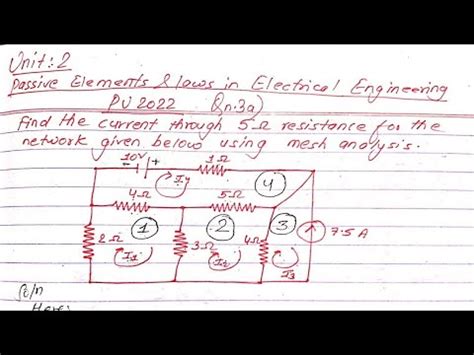 Unit: 2
Passive Elements & laws in Electrical Engineering
PU 2022 Qn.3a)
Find the current through 5Ω resistance for the
network given below using mesh analysis.
10V - + 1Ω
I4 4
4Ω 5Ω
1 2 3
7.5 A
2Ω 3Ω 4Ω
I1 I2 I3
So/n
Here: